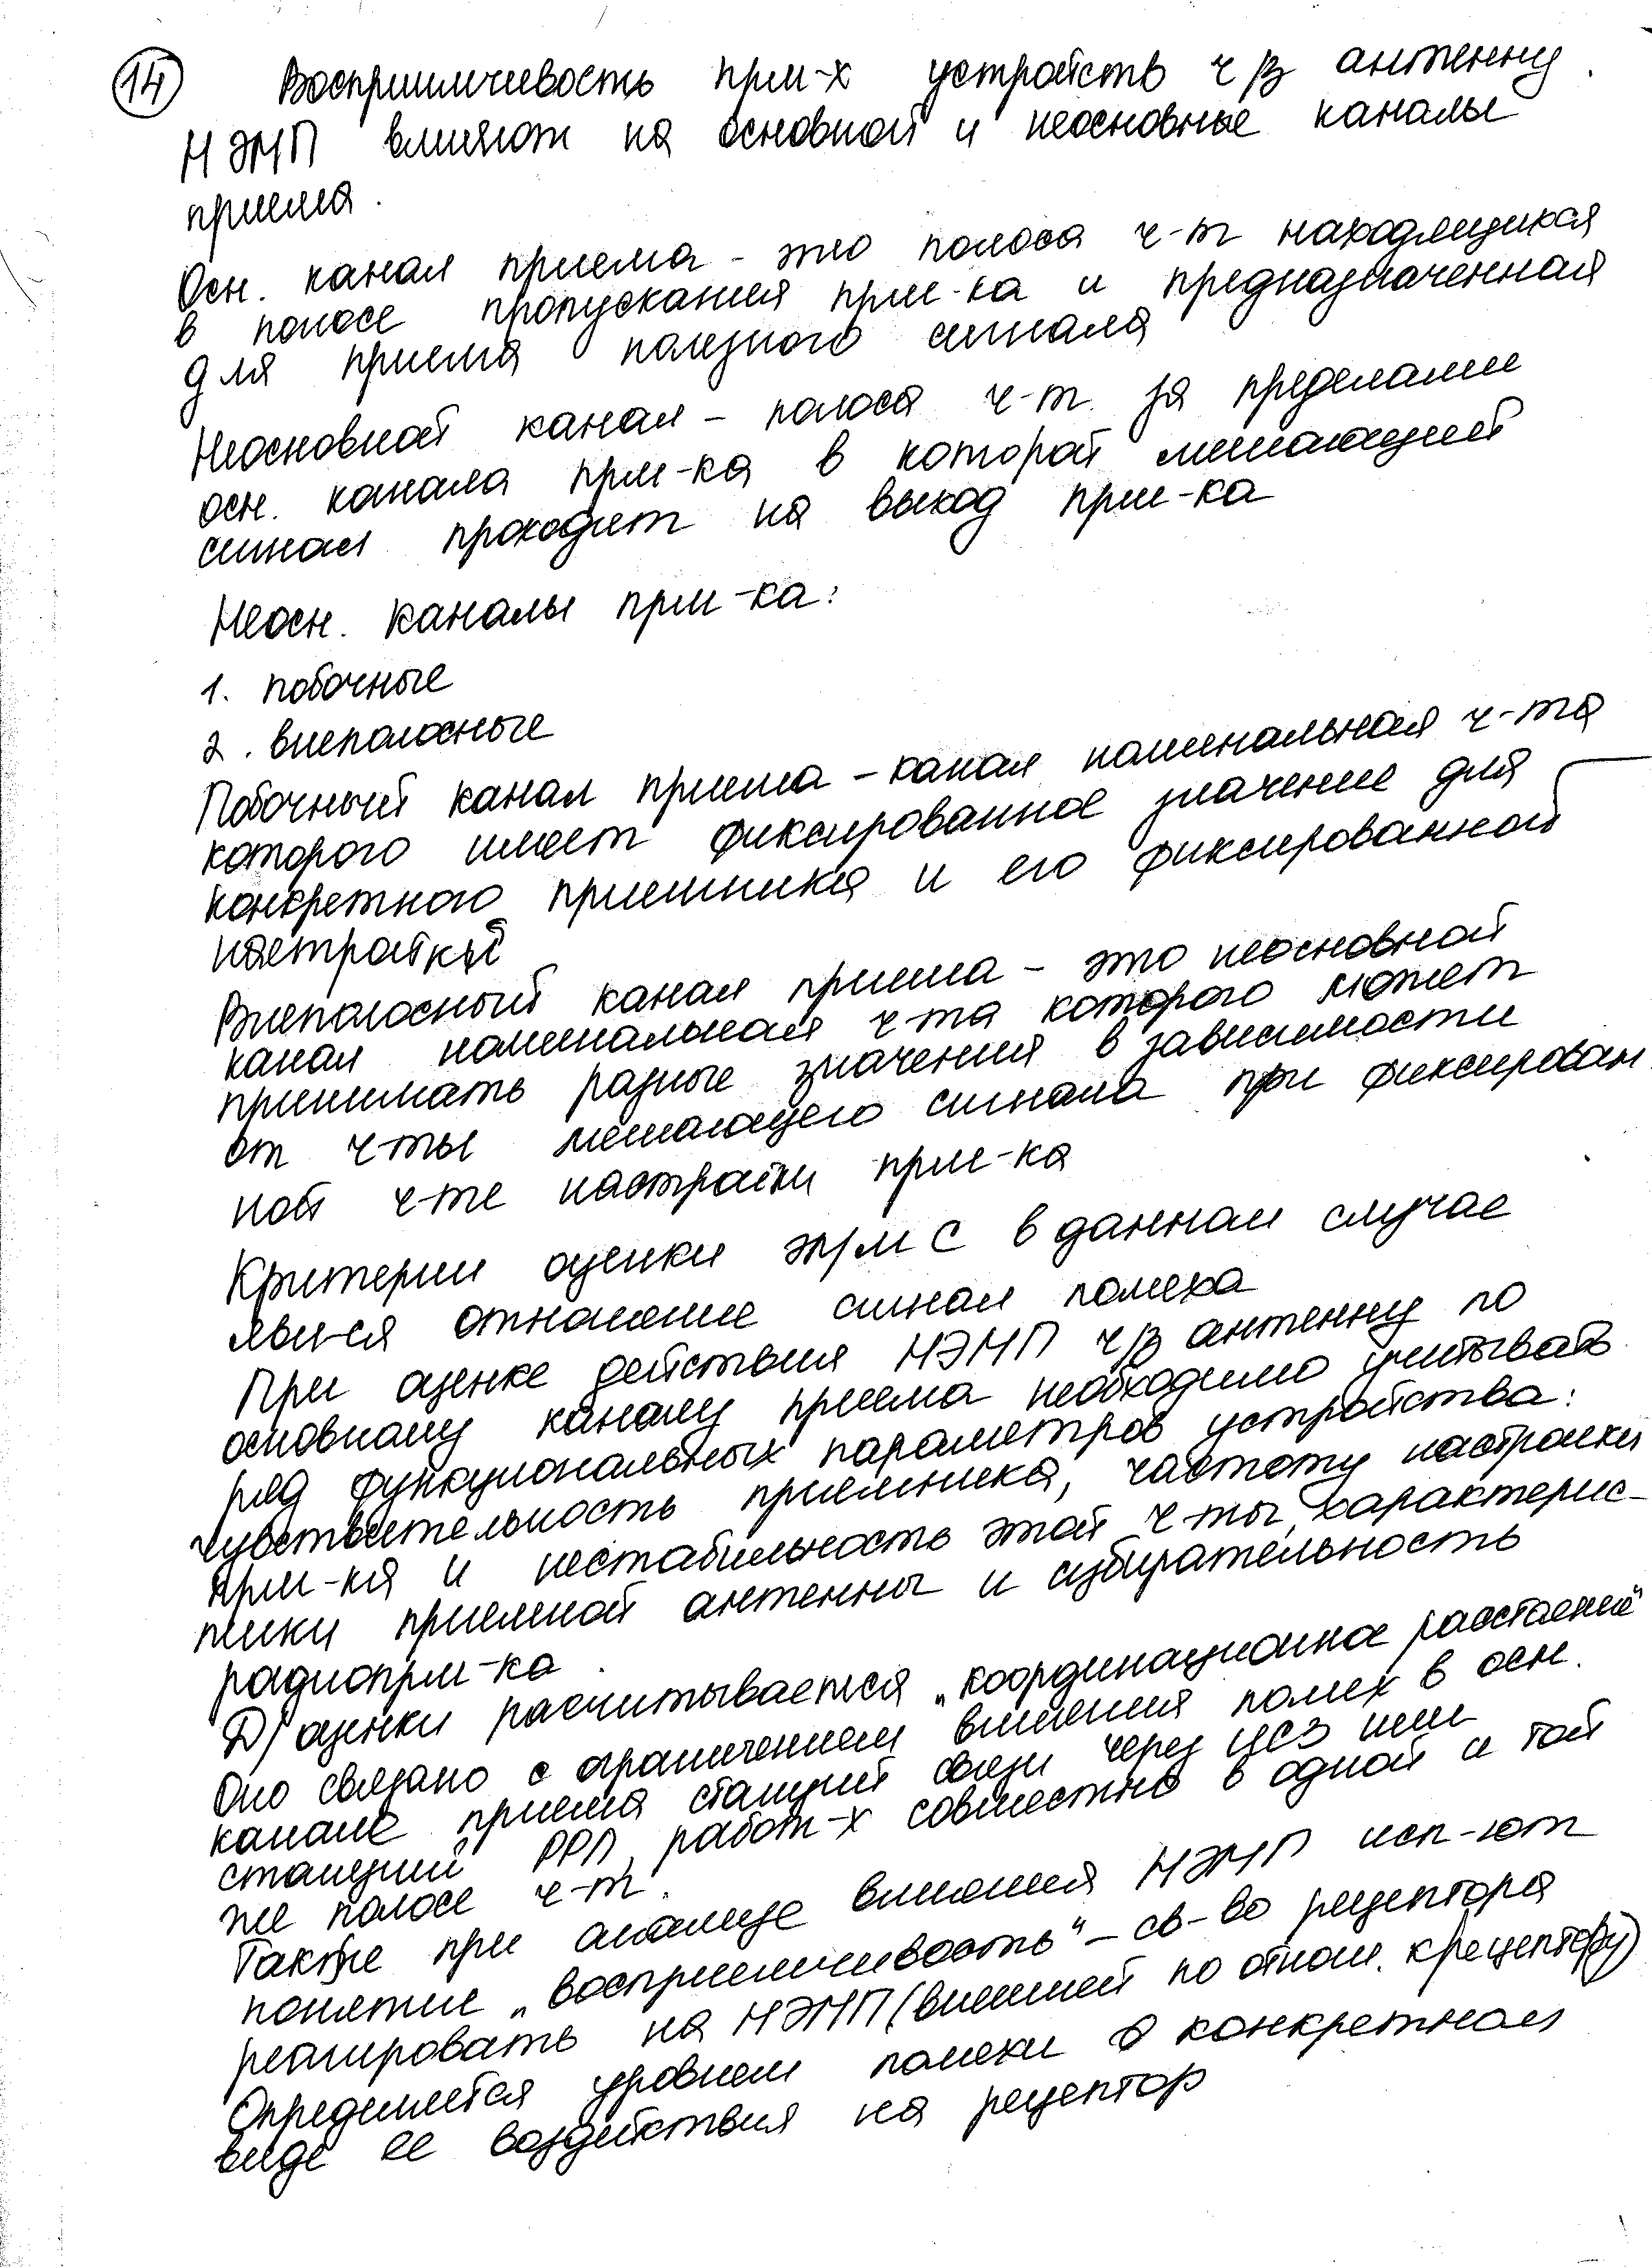 14 Восприимчивость прм-х устройств ч/з антенну.
НЭМП влияют на основной и неосновные каналы
приема.
Осн. канал приема - это полоса ч-т находящихся
в полосе пропускания прм-ка и предназначенная
для приема полезного сигнала
Неосновной канал - полоса ч-т. за пределами
осн. канала прм-ка в которой мешающий
сигнал проходит на выход прм-ка
Неосн. каналы прм-ка:
1. побочные
2. внеполосные
Побочный канал приема - канал номинальная ч-та
которого имеет фиксированное значение для
конкретного приемника и его фиксированной
настройки
Внеполосный канал приема - это неосновной
канал номинальная ч-та которого может
принимать разные значения в зависимости
от ч-ты мешающего сигнала при фиксирован
ной ч-те настройки прм-ка
Критерии оценки эл/м С в данном случае
явл-ся отношение сигнал помеха
При оценке действия НЭМП ч/з антенну по
основному каналу приема необходимо учитывать
ряд функциональных параметров устройства:
чувствительность приемника, частоту настройки
прм-ка и нестабильность этой ч-ты, характерис-
тики приемной антенны и избирательность
радиопрм-ка.
Д/ оценки расчитывается „координационное расстояние"
Оно связано с ограничением влияния помех в осн.
канале приема станций связи через ИСЗ или
станций РРЛ, работ-х совместно в одной и той
же полосе ч-т.
Также при анализе влияния НЭМП исп-ют
понятие „восприимчивость" - св-во рецептора
реагировать на НЭМП (внешней по отнош. к рецептору)
Определяется уровнем помехи в конкретном
виде ее воздействия на рецептор